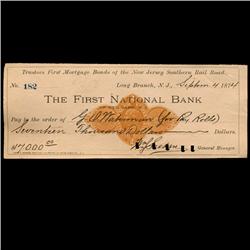 Trustees First Mortgage Bonds of the New Jersey Southern Rail Road.
No. 182 Long Branch, N. J., Septem 4 1874
THE FIRST NATIONAL BANK
Pay to the order of G. W. (for Pay Rolls)
Seventeen Thousand Dollars Dollars.
$17000.00 General Manager.